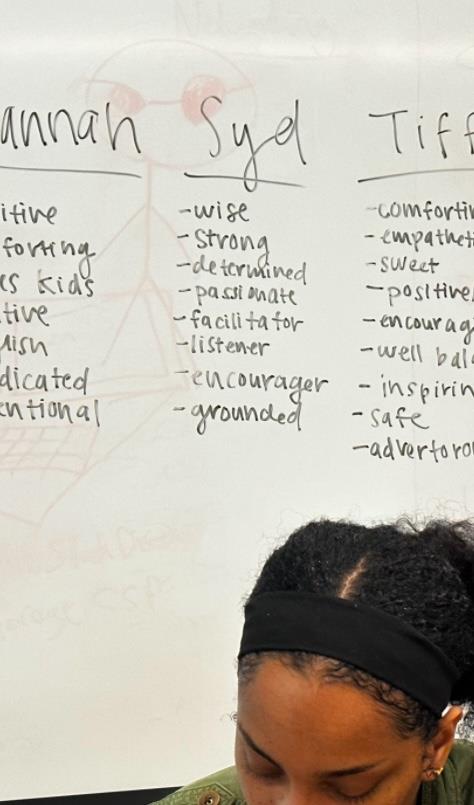 annah
itive
forting
es kids
tive
lish
dicated
entional
Syd
-wise
-strong
-determined
-passionate
-facilitator
-listener
-encourager
-grounded
Tiff
-comforti
-empatheti
-sweet
-positive
-encourag
-well bal
-inspirin
-safe
-advertoro